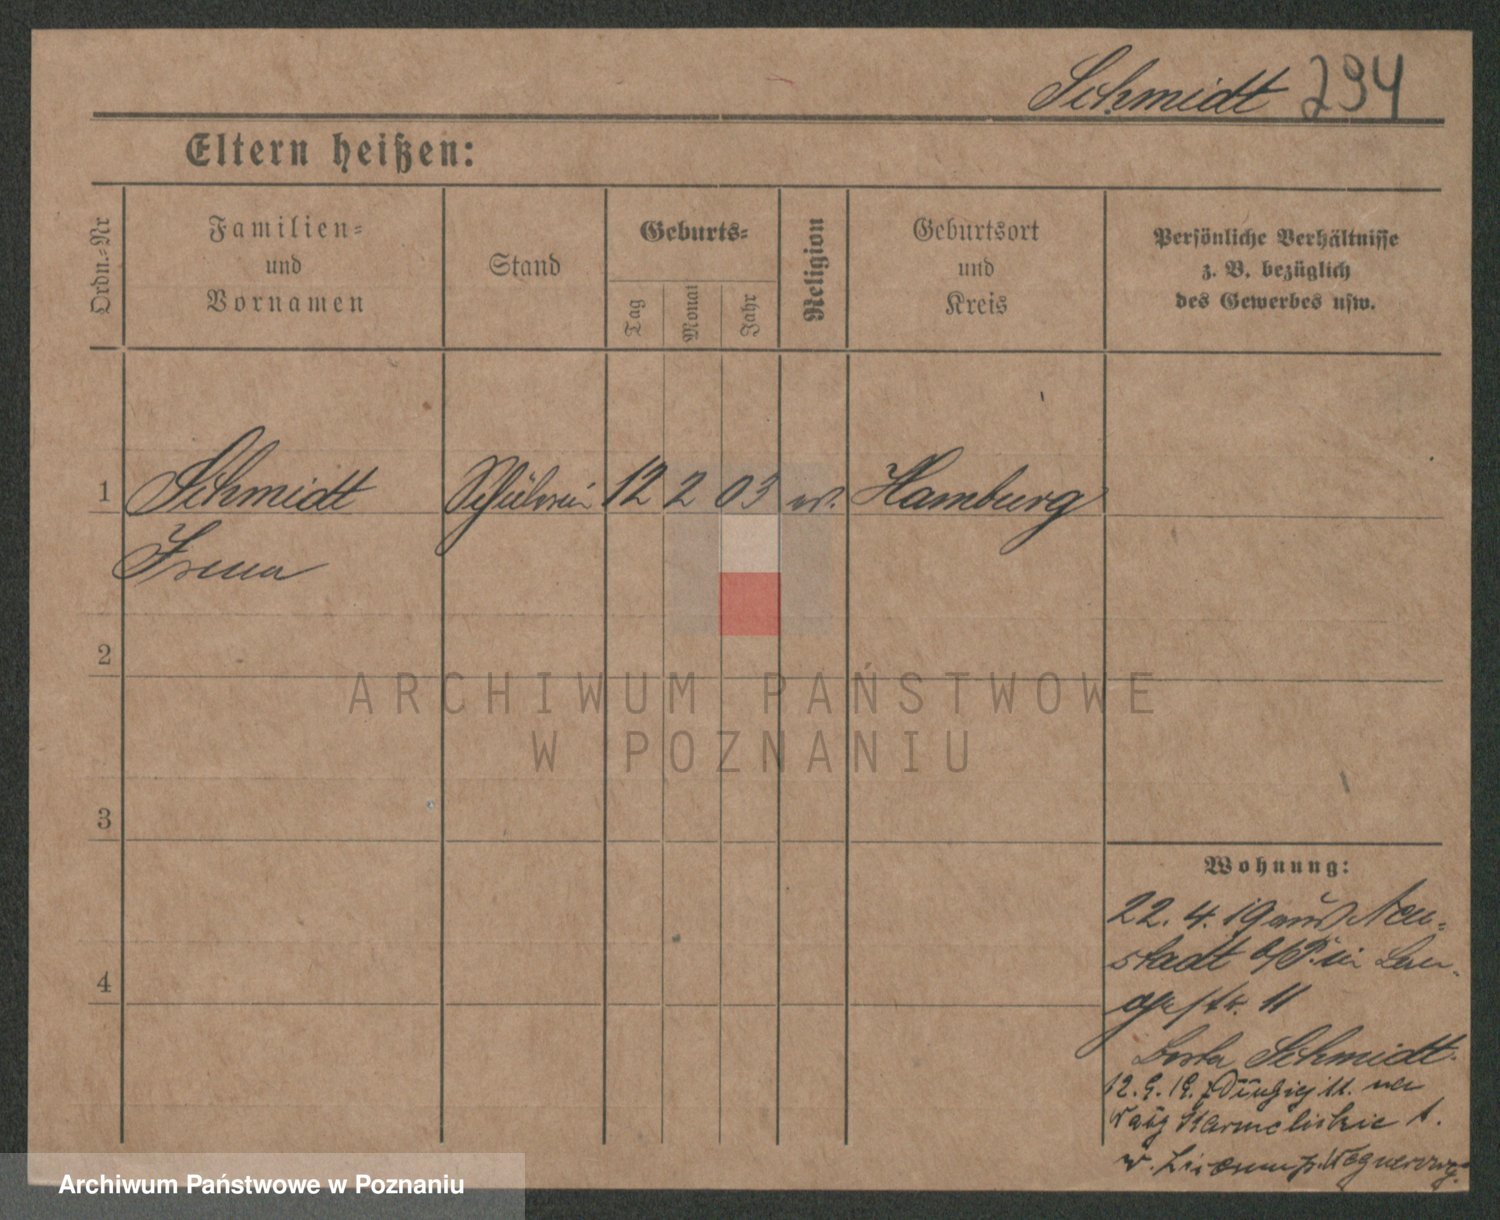 Schmidt 294
Eltern heißen:
Ordn.-Nr
Familien-
und
Vornamen
Stand
Geburts-
Tag
Monat
Jahr
Religion
Geburtsort
und
Kreis
Persönliche Verhältnisse
z. B. bezüglich
des Gewerbes usw.
1 Schmidt Schülerin 12 2 03 ev. Hamburg
Irena
2
ARCHIWUM PAŃSTWOWE
W POZNANIU
3
4
Wohnung:
22. 4. 19 aus Neu-
stadt b/P. in Lan-
gestr. 11
Schmidt
12. 9. 19. z Długiej 11. na
Karmelickie 1.
w
Archiwum Państwowe w Poznaniu